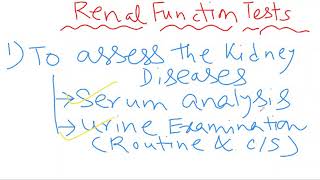 Renal Function Tests
1) To assess the Kidney
Diseases
→ Serum analysis
→ Urine Examination
(Routine & C/S)